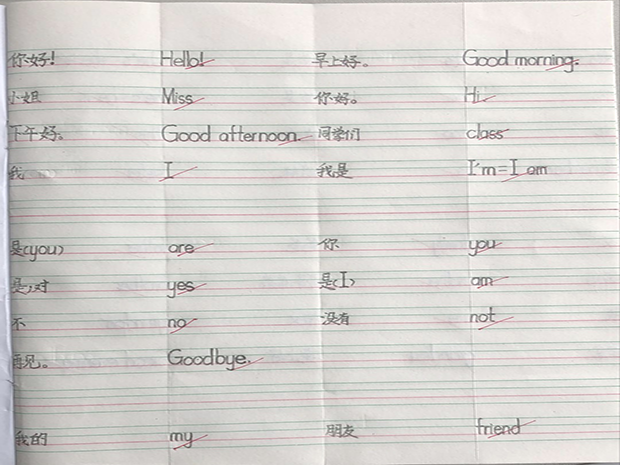 你好! Hello! 早上好。 Good morning.
小姐 Miss 你好。 Hi.
下午好。 Good afternoon. 同学们 class
我 I 我是 I'm=I am
是(you) are 你 you
是,对 yes 是(I) am
不 no 没有 not
再见。 Goodbye.
我的 my 朋友 friend